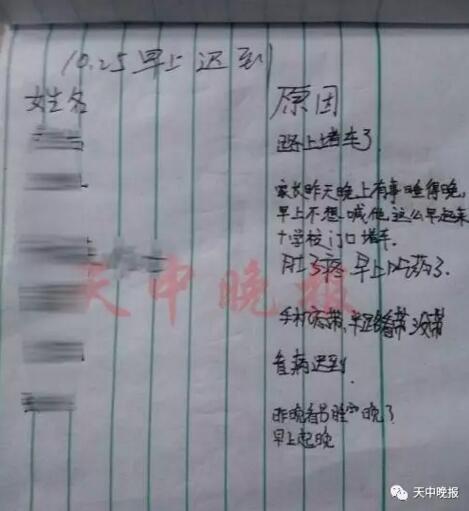 10.25早上迟到
姓名
原因
路上堵车了
家长昨天晚上有事睡得晚,
早上不想喊他这么早起来
十学校门口堵车.
肚子疼 早上吃药了.
天中晚报
手机忘带,半路看带没带
看病迟到.
昨晚看书睡的晚了
早上起晚
天中晚报